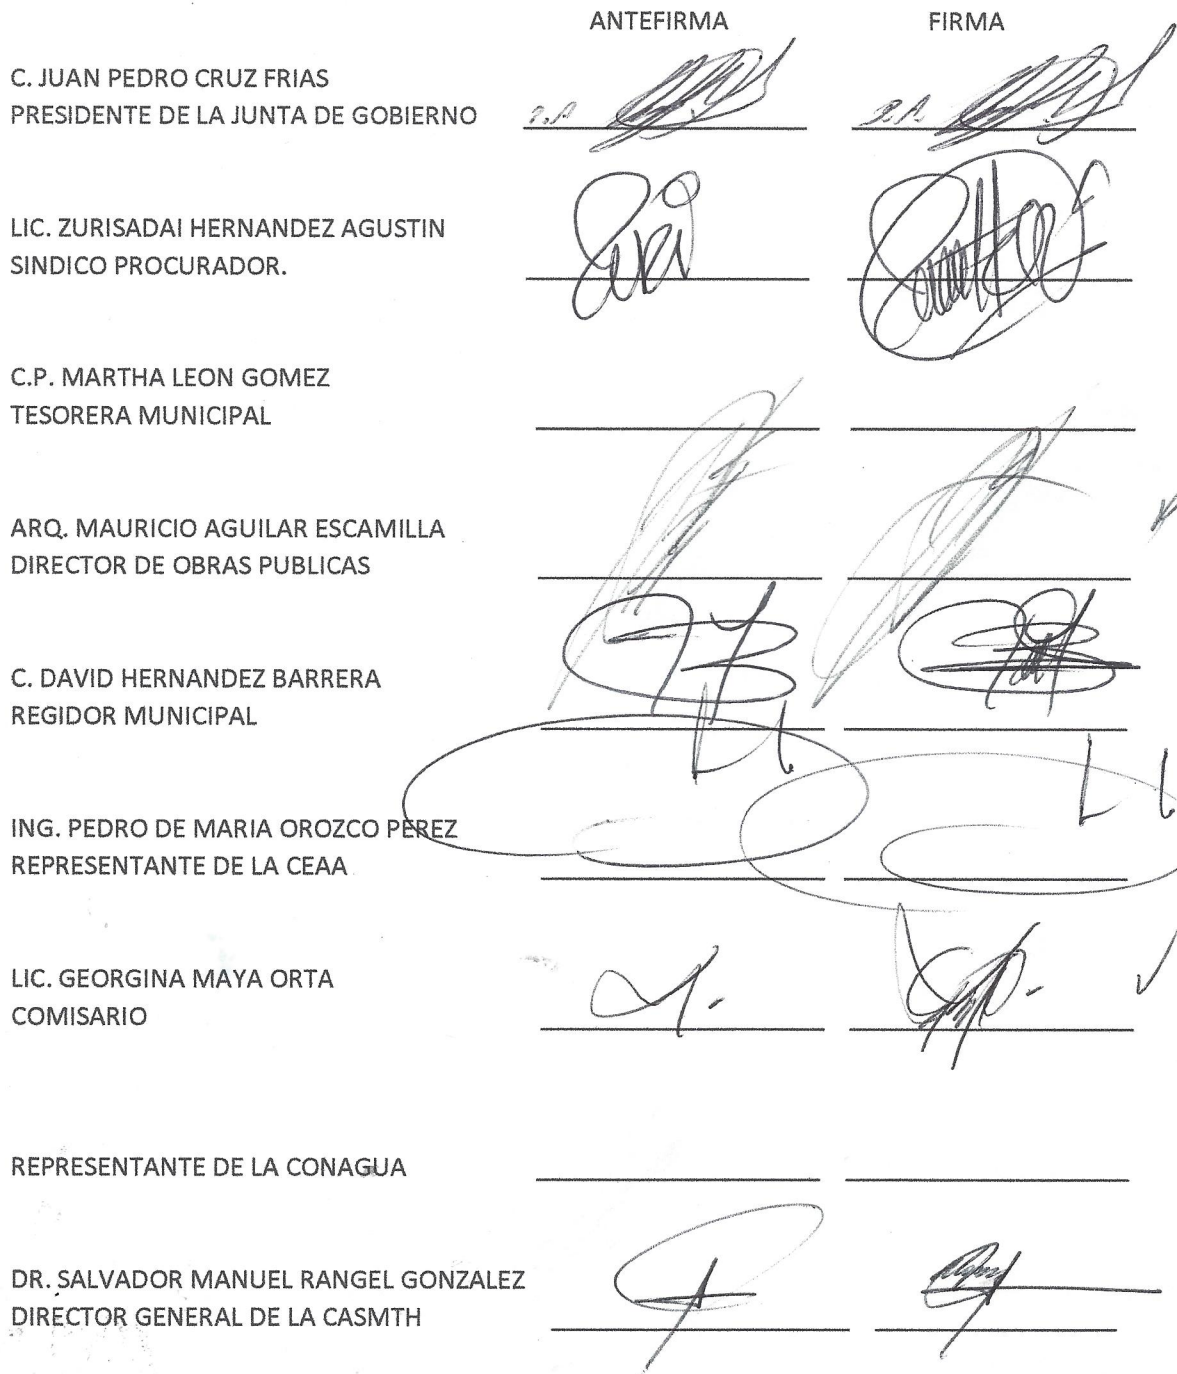 ANTEFIRMA FIRMA
C. JUAN PEDRO CRUZ FRIAS
PRESIDENTE DE LA JUNTA DE GOBIERNO
P.A. P.A.
LIC. ZURISADAI HERNANDEZ AGUSTIN
SINDICO PROCURADOR.
C.P. MARTHA LEON GOMEZ
TESORERA MUNICIPAL
ARQ. MAURICIO AGUILAR ESCAMILLA
DIRECTOR DE OBRAS PUBLICAS
C. DAVID HERNANDEZ BARRERA
REGIDOR MUNICIPAL
ING. PEDRO DE MARIA OROZCO PEREZ
REPRESENTANTE DE LA CEAA
LIC. GEORGINA MAYA ORTA
COMISARIO
REPRESENTANTE DE LA CONAGUA
DR. SALVADOR MANUEL RANGEL GONZALEZ
DIRECTOR GENERAL DE LA CASMTH